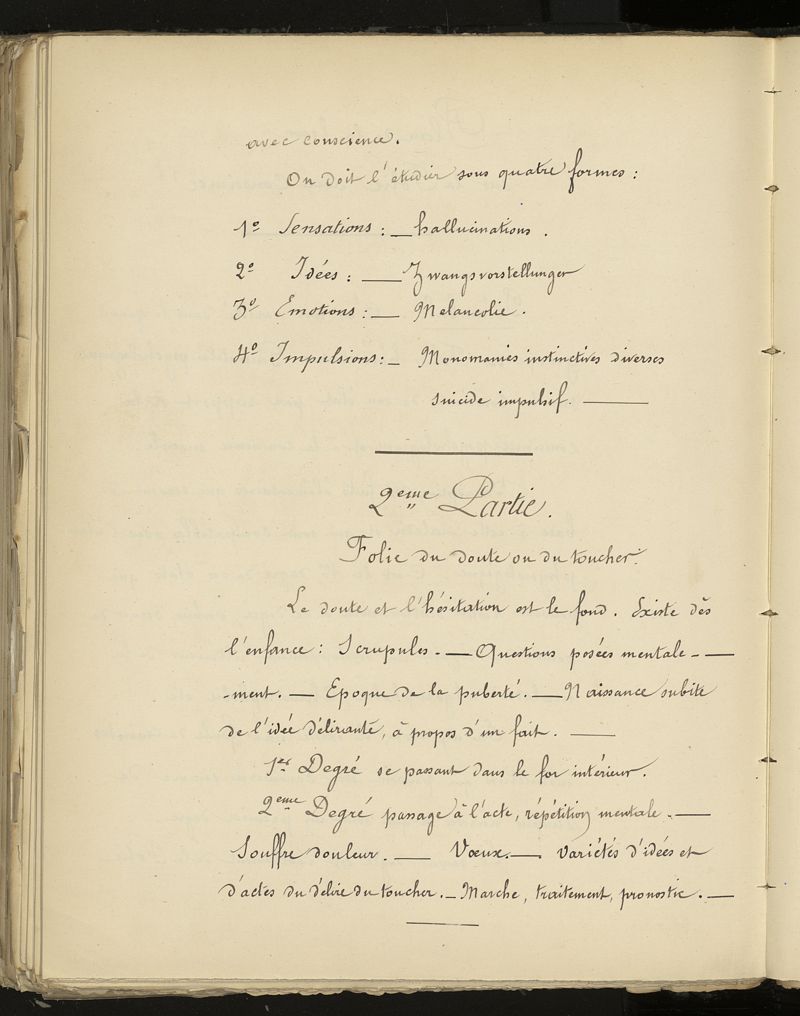 avec conscience.
On doit l'étudier sous quatre formes :
1° Sensations : — hallucinations .
2° Idées : — Zwangsvorstellunger
3° Emotions : — Melancolie .
4° Impulsions : — Monomanies instinctives diverses
suicide impulsif. —
2eme Partie.
Folie du doute ou du toucher.
Le doute et l'hésitation est le fond. Existe dès
l'enfance : Scrupules - — Questions posées mentale - —
-ment. — Epoque de la puberté. — Naissance subite
de l'idée délirante, à propos d'un fait. —
1er Degré se passant dans le for intérieur.
2eme Degré passage à l'acte, répétition mentale. —
Souffre douleur. — Vœux. — Variétés d'idées et
d'actes du délire du toucher. — Marche, traitement, pronostic. —